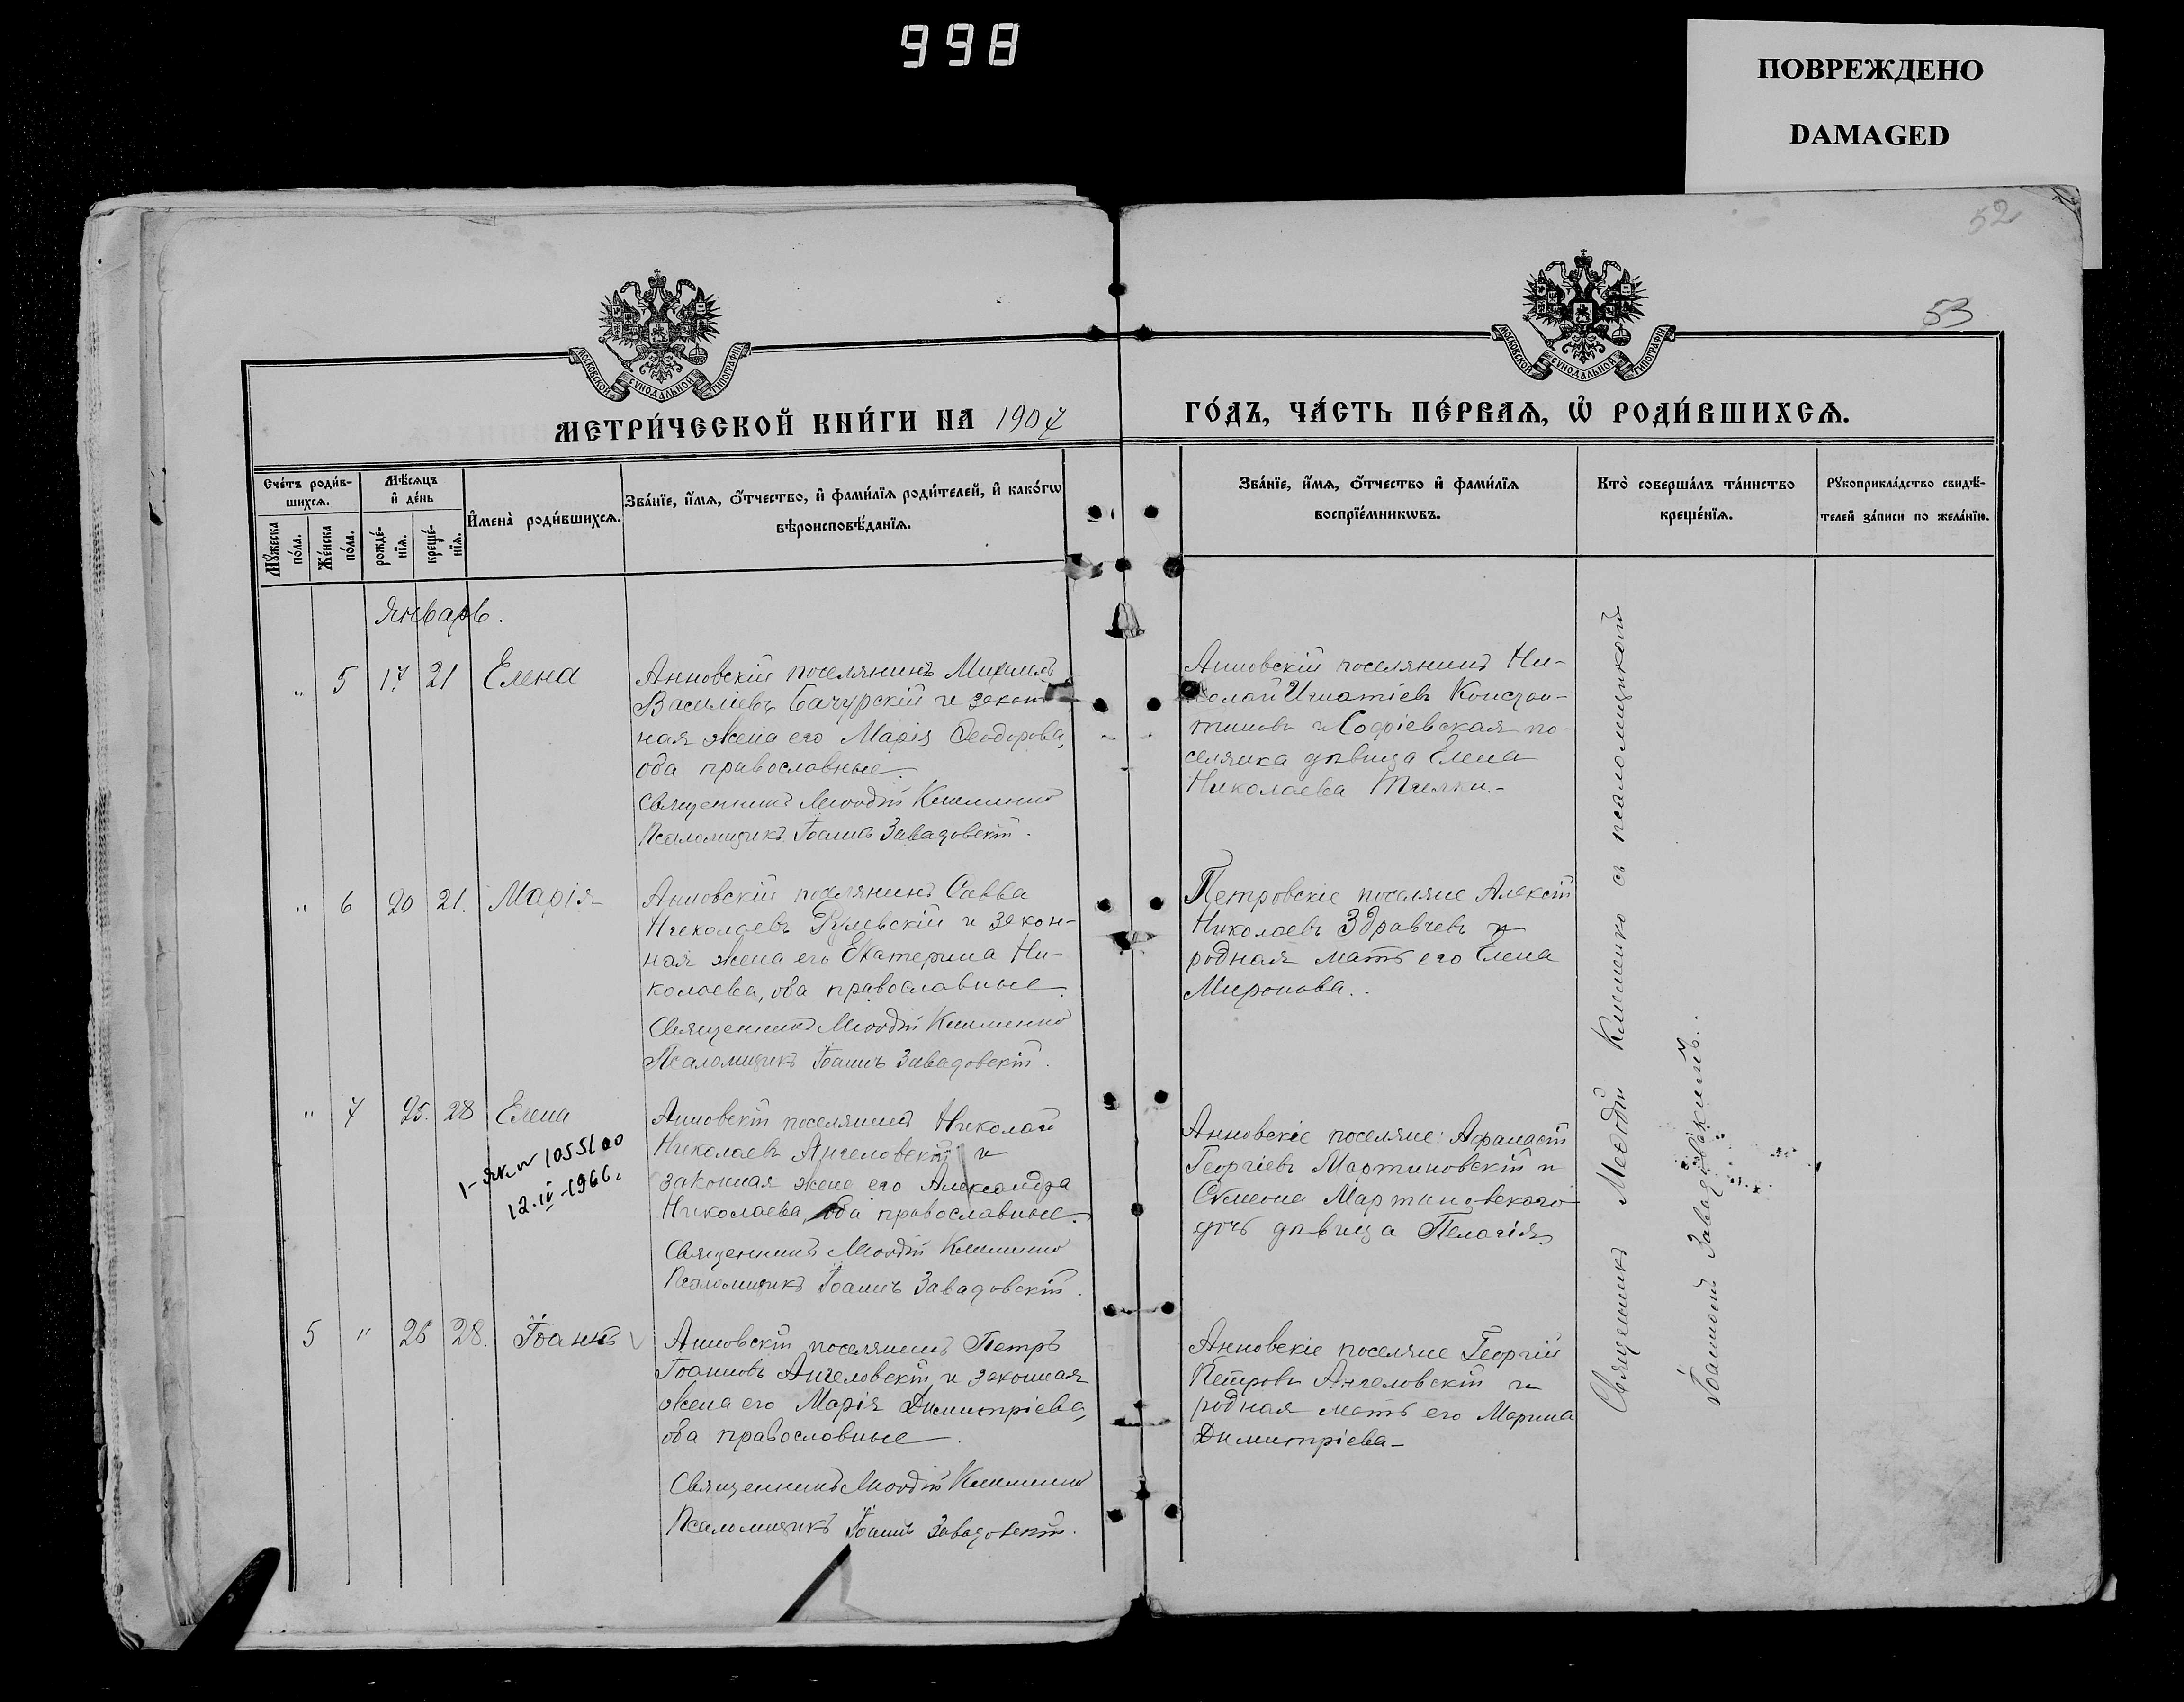 998
ПОВРЕЖДЕНО
DAMAGED
52
53
МОСКОВСКОЙ СѴНОДАЛЬНОЙ ТИПОГРАФІИ
МОСКОВСКОЙ СѴНОДАЛЬНОЙ ТИПОГРАФІИ
МЕТРИ́ЧЕСКОЙ КНИ́ГИ НА 1907
ГО́ДЪ, ЧА́СТЬ ПЕ́РВАѦ, Ѡ҆ РОДИ́ВШИХСѦ.
Счéтъ роди́в-
шихсѧ.
Мꙋ́жеска по́ла.
Же́нска по́ла.
Мѣ́сѧцъ
и҆ де́нь
рожде́-
нїѧ.
креще́-
нїѧ.
И҆мена̀ роди́вшихсѧ.
Зва́нїе, и҆́мѧ, ѻ҆́тчество, и҆ фами́лїѧ роди́телей, и҆ како́гѡ
вѣроисповѣ́данїѧ.
Зва́нїе, и҆́мѧ, ѻ҆́тчество и҆ фами́лїѧ
воспрїе́мникѡвъ.
Кто̀ соверша́лъ та́инство
креще́нїѧ.
Рꙋкоприкла́дство свидѣ́-
телей за́писи по жела́нїю.
Январь.
" 5 17 21 Елена
Анновскій поселянинъ Михаилъ
Василіевъ Бачурскій и закон-
ная жена его Марія Ѳеодорова,
оба православные.
Священникъ Меѳодій Клименко
Псаломщикъ Іоаннъ Завадовскій.
Анновскій поселянинъ Ни-
колай Игнатіевъ Констан-
тиновъ и Софіевская по-
селянка дѣвица Елена
Николаева
" 6 20 21. Марія
Анновскій поселянинъ Савва
Николаевъ и закон-
ная жена его Екатерина Ни-
колаева, оба православные.
Священникъ Меѳодій Клименко
Псаломщикъ Іоаннъ Завадовскій.
Петровскіе поселяне Алексій
Николаевъ Здравчевъ и
родная мать его Елена
Миронова..
" 7 25. 28 Елена
1-як. № 105510
12.IV-1966.
Анновскій поселянинъ Николай
Николаевъ Ангеловскій и
законная жена его Александра
Николаева, оба православные.
Священникъ Меѳодій Клименко
Псаломщикъ Іоаннъ Завадовскій.
Анновскіе поселяне: Афанасій
Георгіевъ Мартиновскій и
Сѵмеона Мартиновскаго
дочь дѣвица Пелагія.
5 " 26 28. Іоаннъ
Анновскій поселянинъ Петръ
Іоанновъ Ангеловскій и законная
жена его Марія Димитріева,
оба православные.
Священникъ Меѳодій Клименко
Псаломщикъ Іоаннъ Завадовскій.
Анновскіе поселяне Георгій
Петровъ Ангеловскій и
родная мать его Марина
Димитріева-
Священникъ Меѳодій Клименко съ псаломщикомъ
Іоанномъ Завадовскимъ..